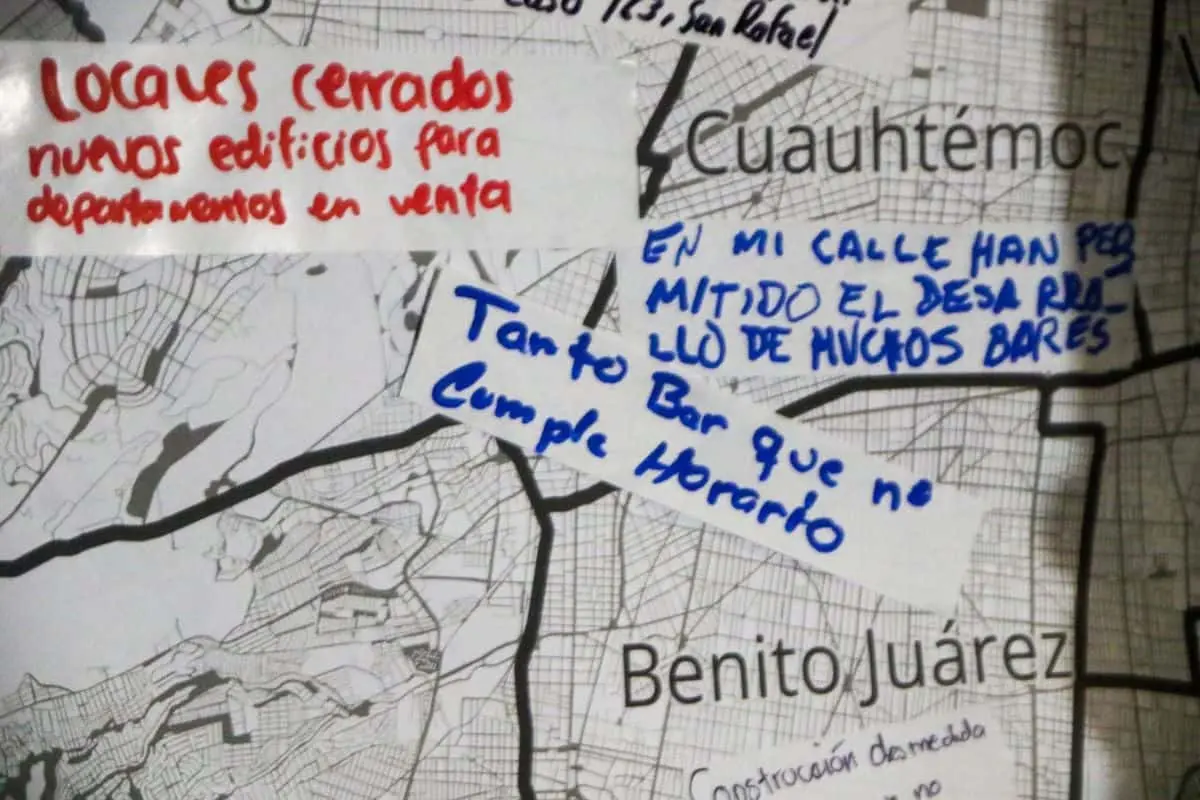 Caso 123, San Rafael
Locales cerrados
nuevos edificios para
departamentos en venta
Cuauhtémoc
EN MI CALLE HAN PER
MITIDO EL DESARRO-
LLO DE MUCHOS BARES
Tanto Bar que no
Cumple Horario
Benito Juárez
Construcción desmedida
no